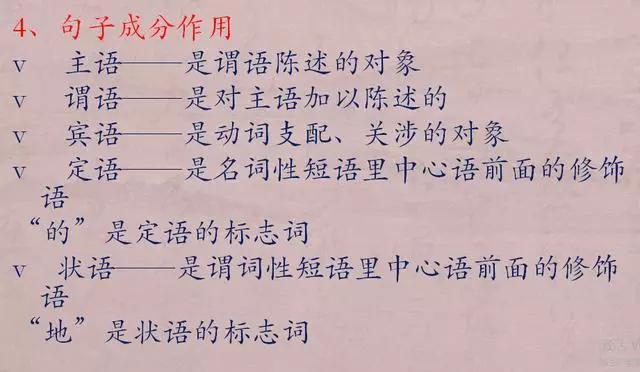 4、句子成分作用
v 主语——是谓语陈述的对象
v 谓语——是对主语加以陈述的
v 宾语——是动词支配、关涉的对象
v 定语——是名词性短语里中心语前面的修饰
语
“的”是定语的标志词
v 状语——是谓词性短语里中心语前面的修饰
语
“地”是状语的标志词